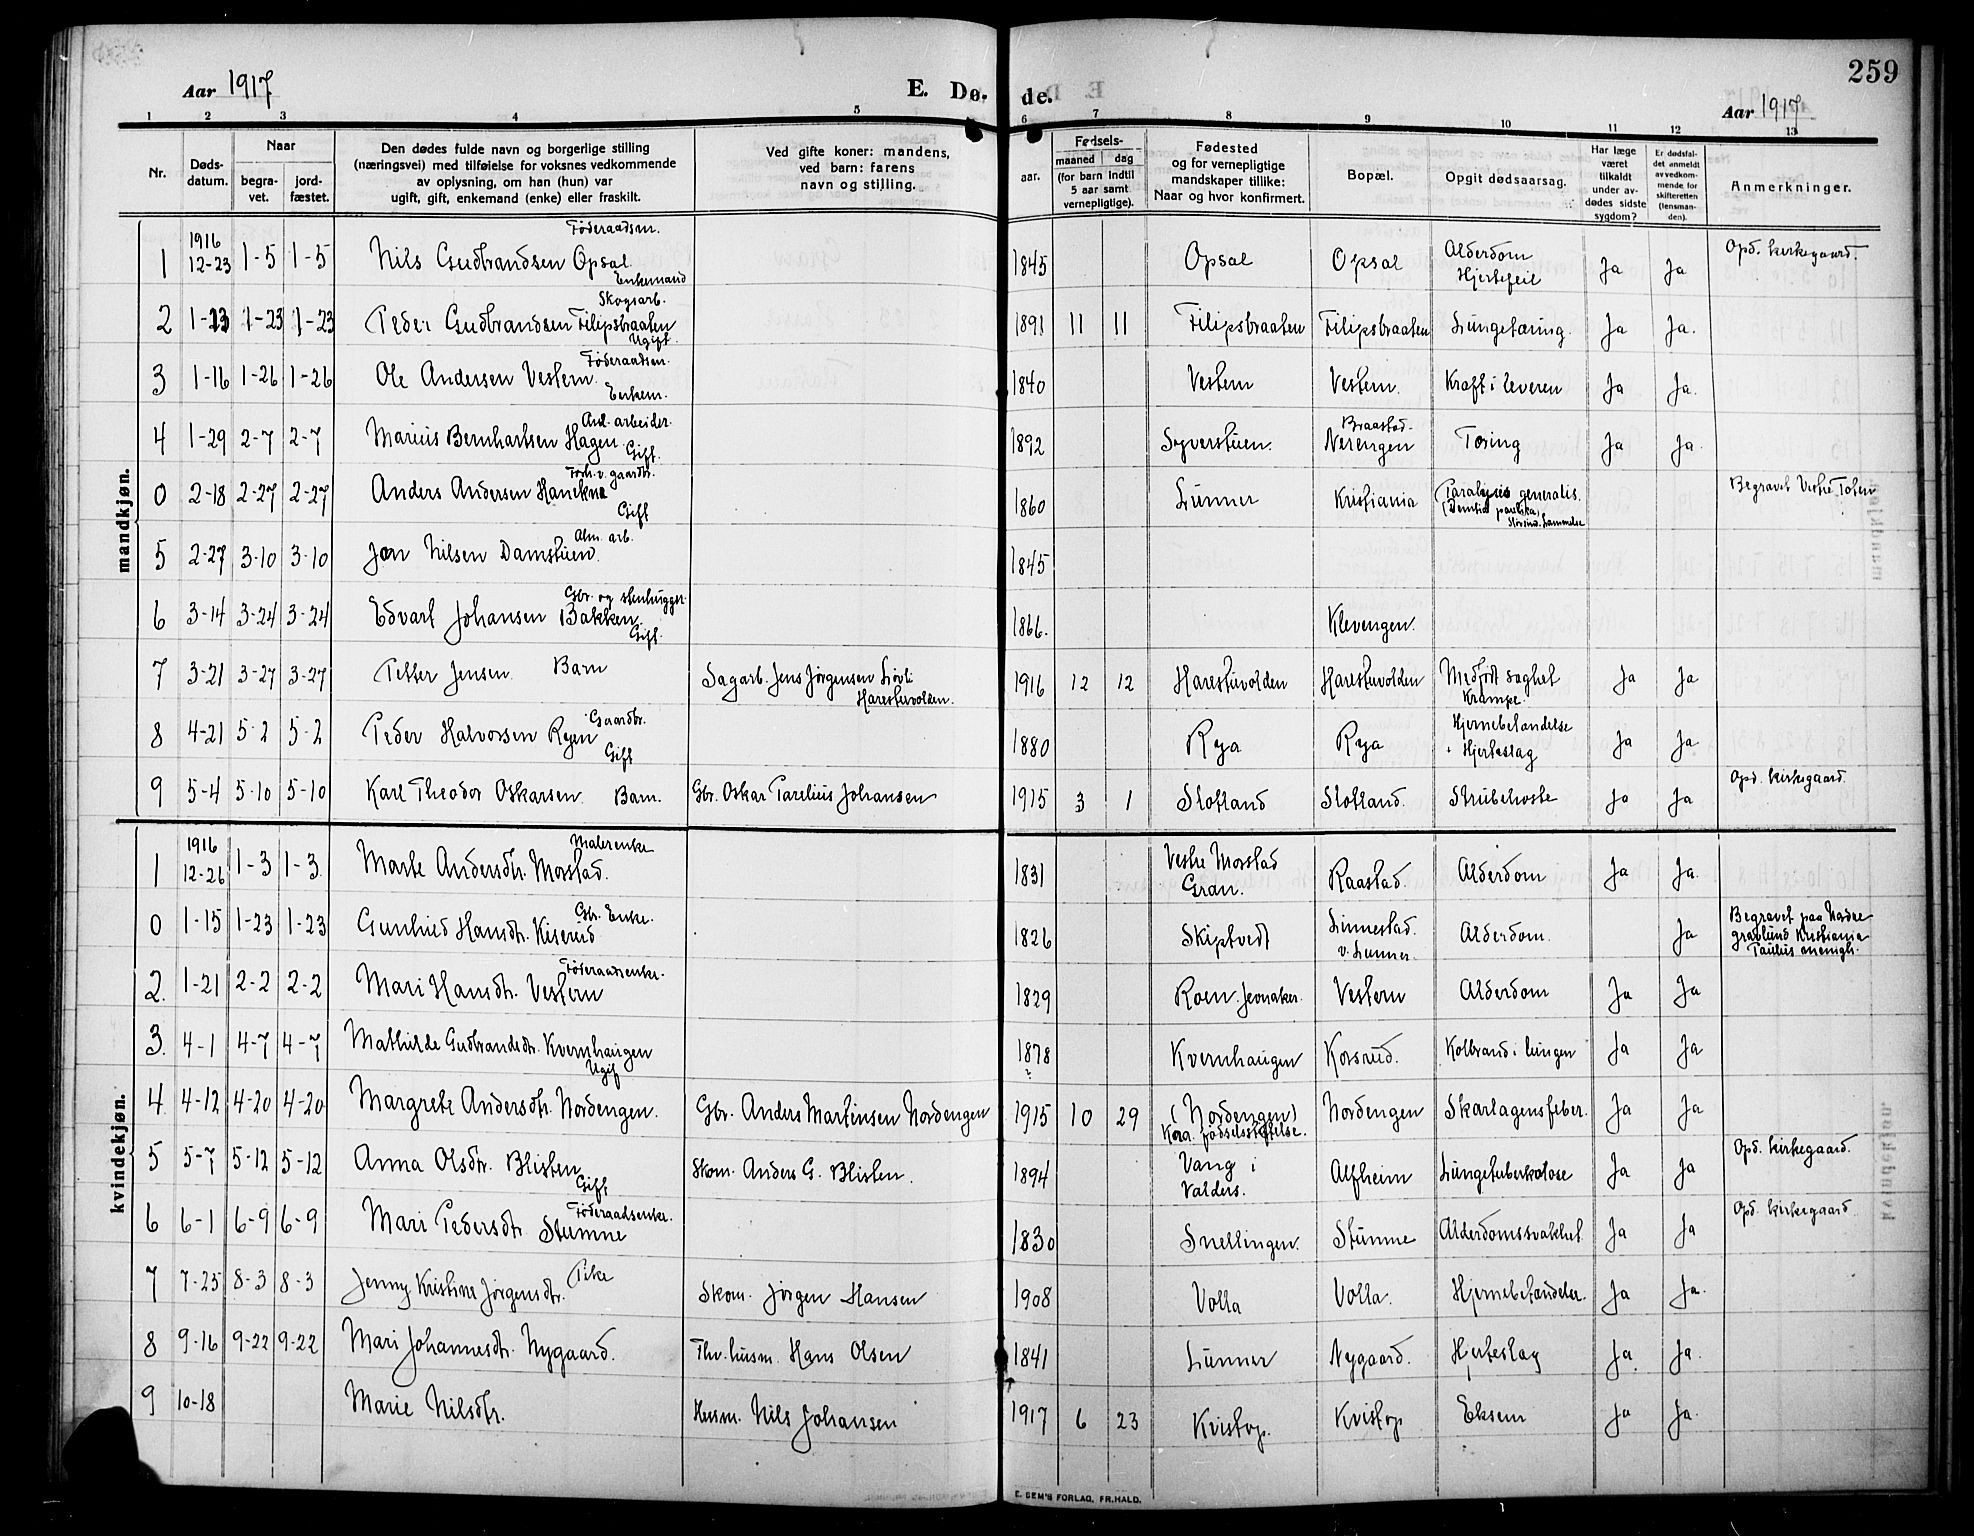 259
Aar 1917
E. Dø- de.
Aar 1917
1 2 3 4 5 6 7 8 9 10 11 12 13
Nr. Døds-datum. Naar begra-vet. jord-fæstet. Den dødes fulde navn og borgerlige stilling (næringsvei) med tilføielse for voksnes vedkommende av oplysning, om han (hun) var ugift, gift, enkemand (enke) eller fraskilt. Ved gifte koner: mandens, ved barn: farens navn og stilling. Fødsels- aar. maaned dag (for barn indtil 5 aar samt vernepligtige). Fødested og for vernepligtige mandskaper tillike: Naar og hvor konfirmert. Bopæl. Opgit dødsaarsag. Har læge været tilkaldt under av-dødes sidste sygdom? Er dødsfal-det anmeldt av vedkom-mende for skifteretten (lensman-den). Anmerkninger.
mandkjøn.
1 1916 12-23 1-5 1-5 Nils Gudbrandsen Opsal Føderaadsm. Enkemand 1845 Opsal Opsal Alderdom Hjertefeil Ja Ja Opd. kirkegaard.
2 1-13 1-23 1-23 Peder Gudbrandsen Filipsbraaten Skogsarb. Ugift 1891 11 11 Filipsbraaten Filipsbraaten Lungetæring. Ja Ja.
3 1-16 1-26 1-26 Ole Andersen Vestern. Føderaadsm. Enkem. 1840 Vestern Vestern. Kræft i leveren Ja Ja.
4 1-29 2-7 2-7 Marius Bernhartsen Hagen Anl. arbeider. Gift. 1892 Syverstuen. Braastad- Nerengen Tæring Ja Ja.
0 2-18 2-27 2-27 Anders Andersen Forh. v. gaardbr. Gift 1860 Lunner Kristiania Paralysis generalis. Begravet Vestre Toten
5 2-27 3-10 3-10 Jon Nilsen Damstuen. Alm. arb. 1845
6 3-14 3-24 3-24 Edvart Johansen Bakken. Gbr. og stenhugger. Gift. 1866. Klevengen.
7 3-21 3-27 3-27 Petter Jensen. Barn Sagarb. Jens Jørgensen Løvli Harestuvolden. 1916 12 12 Harestuvolden Harestuvolden Medfødt svaghet Krampe. Ja Ja
8 4-21 5-2 5-2 Peder Halvorsen Ryen Gaardbr. Gift 1880 Rya Rya Hjernebetændelse Hjerteslag Ja Ja
9 5-4 5-10 5-10 Karl Theodor Oskarsen. Barn. Gbr. Oskar Parelius Johansen 1915 3 1 Slotland Slotland. Strubehoste Ja Ja Opd. kirkegaard.
kvindekjøn.
1 1916 12-26 1-3 1-3 Marte Andersdtr. Morstad. Malerenke 1831 Vestre Morstad Gran. Raastad. Alderdom Ja Ja.
0 1-15 1-23 1-23 Gunhild Hansdtr. Kiserud Gbr. Enke. 1826 Skiptvedt Linnestad. v. Lunner. Alderdom. Ja Begravet paa Nordre gravlund Kristiania Paulus menigh.
2. 1-21 2-2 2-2 Mari Hansdtr. Vestern Føderaadsenke. 1829 Roen Jevnaker. Vestern Alderdom Ja Ja
3. 4-1 4-7 4-7 Mathilde Gudbrandsdtr. Kvernhaugen Ugif 1878 Kvernhaugen Korsrud. Kolbrand i lungen Ja Ja
4. 4-12 4-20 4-20 Margrete Andersdtr. Nordengen. Gbr. Anders Martinsen Nordengen 1915 10 29 (Nordengen) fødselsstiftelse. Nordengen Skarlagensfeber. Ja Ja
5 5-7 5-12 5-12 Anna Olsdtr. Blisten Gift Skom. Anders G. Blisten. 1894 Vang i Valders. Alfheim Lungetuberkolose Ja Ja Opd. kirkegaard.
6 6-1 6-9 6-9 Mari Pedersdtr Stumne Føderaadsenke. 1830 Snellingen. Stumne Alderdomssvakhet Ja Ja Opd. kirkegaard
7 7-25 8-3 8-3 Jenny Kristine Jørgensdtr. Pike Skom. Jørgen Hansen 1908 Volla Volla. Hjernebetændelse. Ja Ja.
8 9-16 9-22 9-22 Mari Johannesdtr. Nygaard. Fhv. husm. Hans Olsen 1841 Lunner Nygaard. Hjerteslag Ja Ja.
9 10-18 Marie Nilsdtr. Husm. Nils Johansen 1917 6 23 Kvistop. Kvistop Eksem Ja Ja.
E. SEM'S FORLAG, FR.HALD.